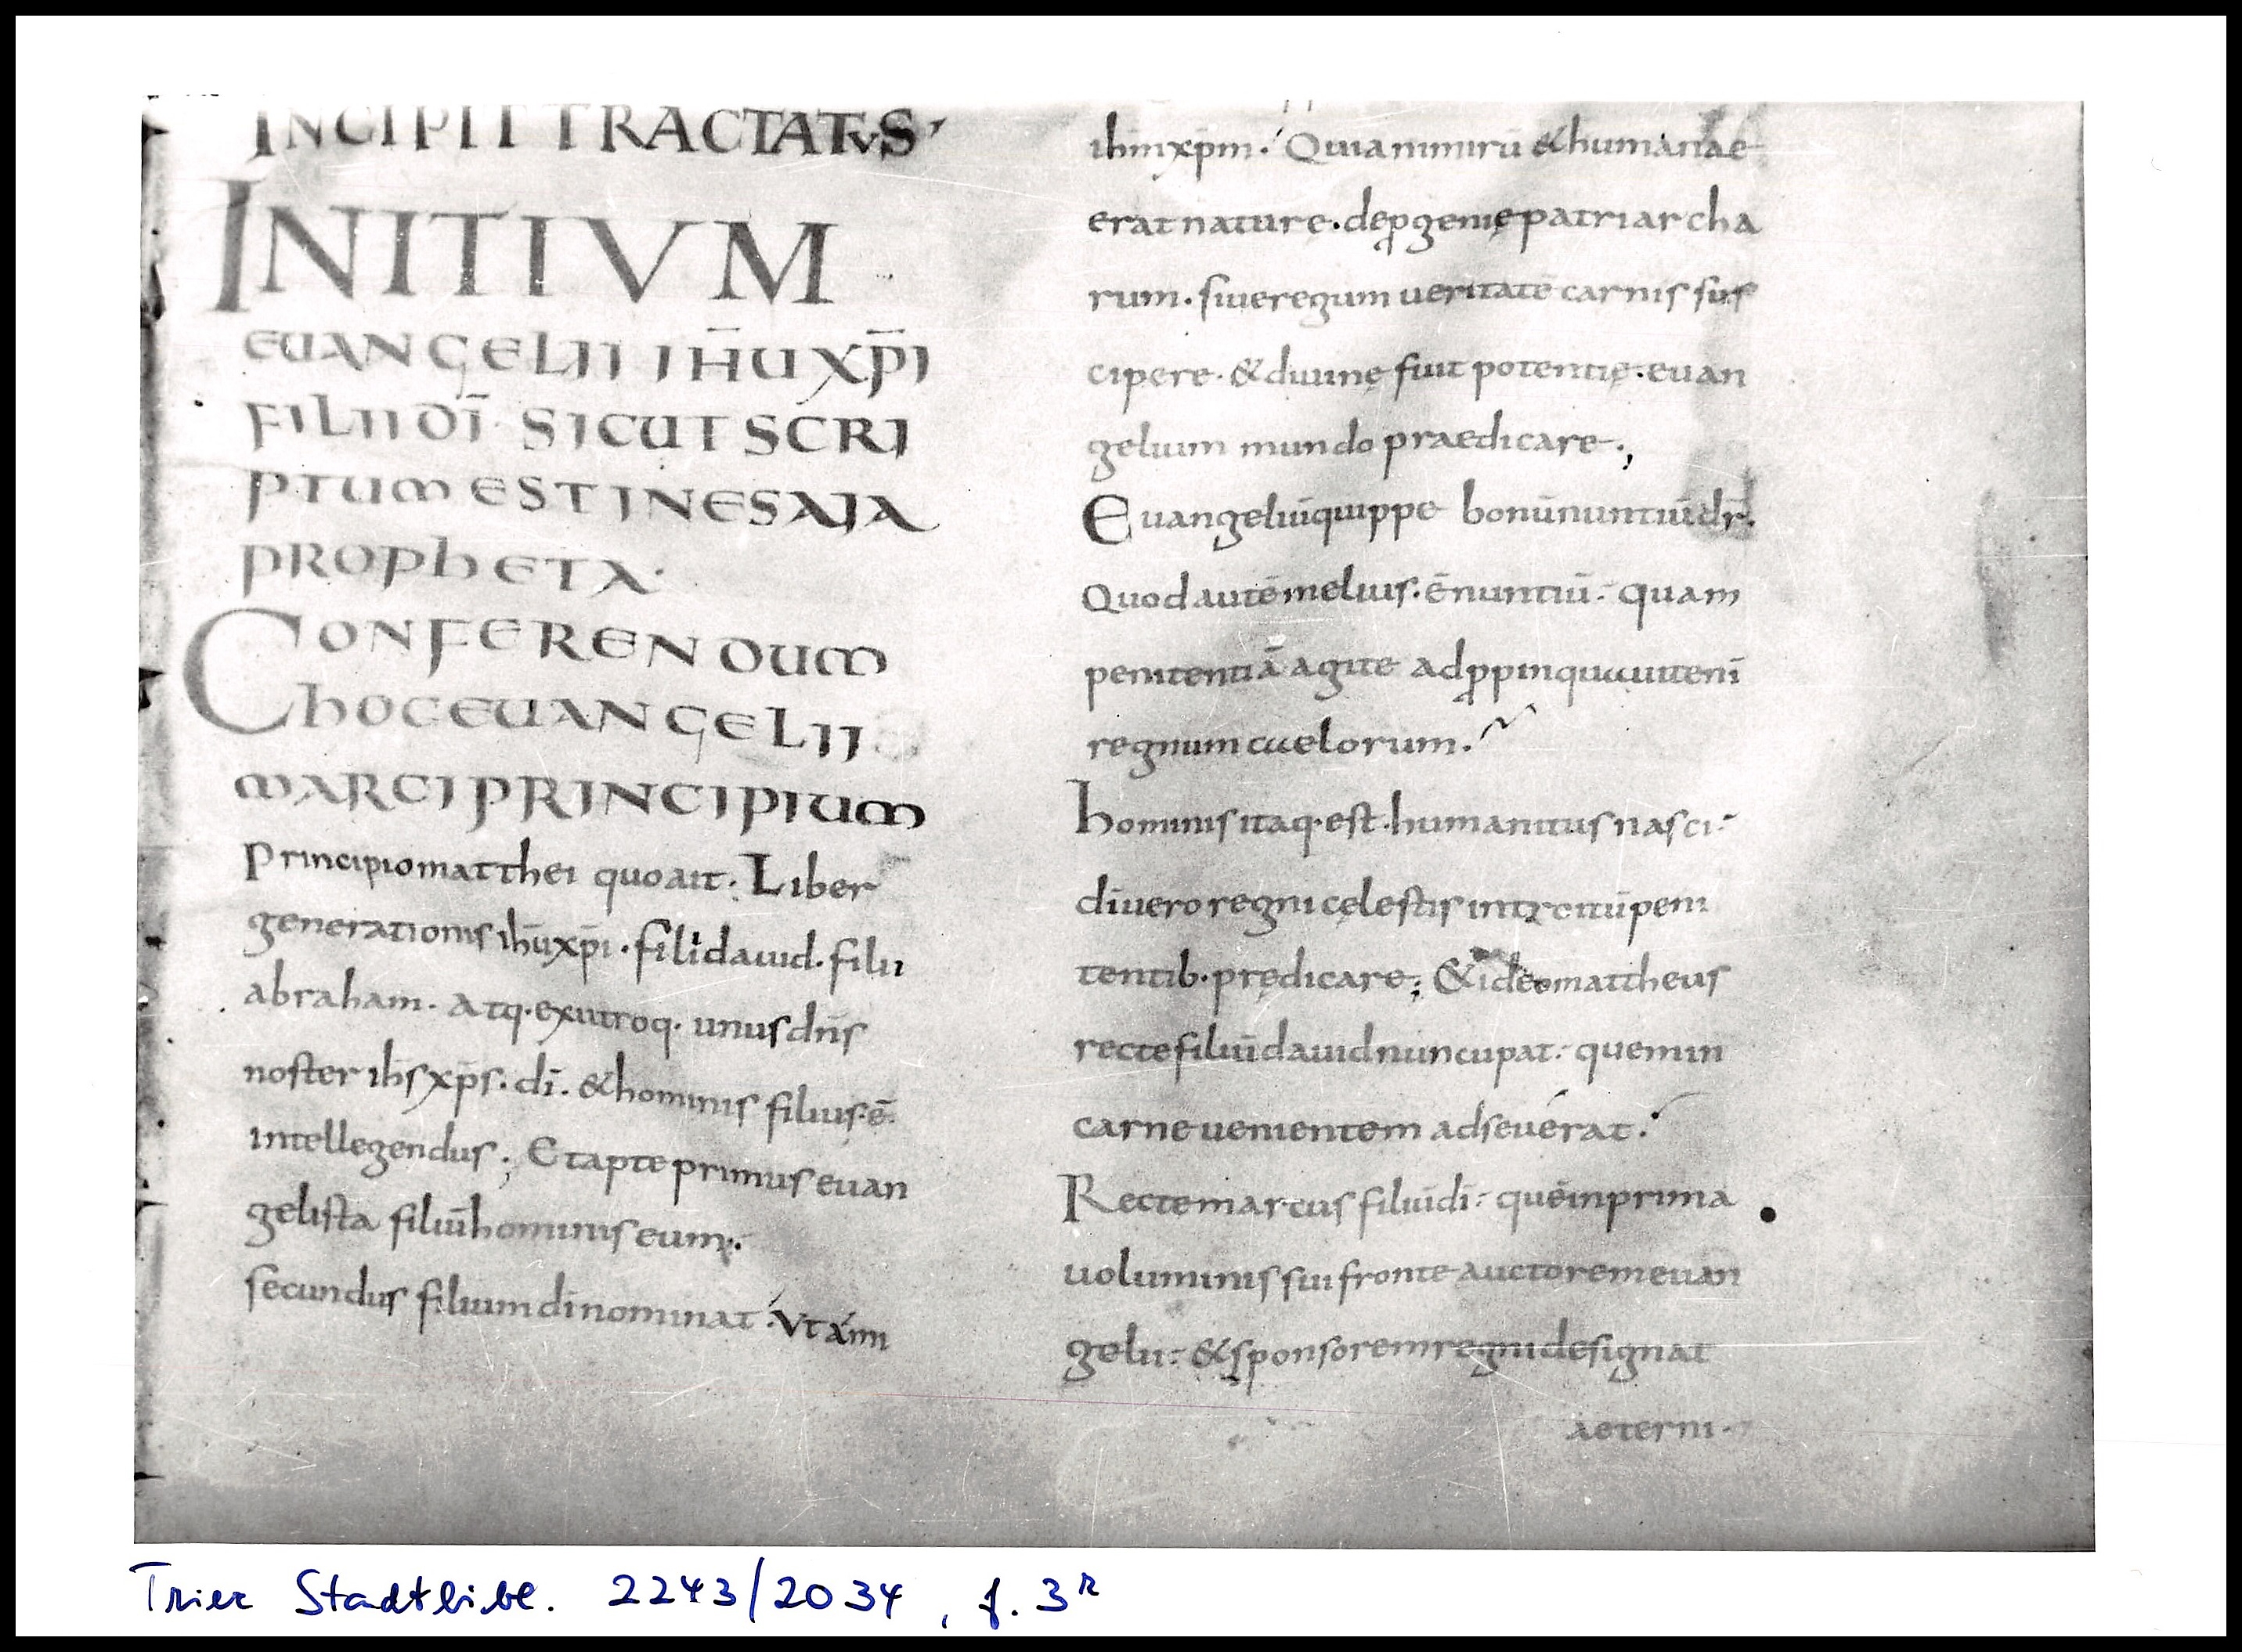 INCIPIT TRACTATVS
INITIVM
EUANGELII IH̄U XP̄I
FILII DĪ· SICUT SCRI
PTUM EST IN ESAIA
PROPHETA·
CONFERENDUM
HOC EUANGELII
MARCI PRINCIPIUM
Principio matthei quo ait: Liber
generationis ih̄u xp̄i · filii dauid · filii
abraham · Atq· ex utroq· unus dn̄s
noster ih̄s xp̄s · dī · & hominis filius · ē
intellegendus ; Et apte primus euan
gelista filiū hominis eum ·
secundus filium dī nominat · Vt a
ih̄m xp̄m · Quia nimirū & humanae
erat nature · de ꝓgenie patriarcha
rum · siue regum ueritatē carnis sus
cipere · & diuinę fuit potentię · euan
gelium mundo praedicare ·,
Euangeliū quippe bonū nuntiū dr̄ ·
Quod autē melius · ē nuntiū · quam
penitentiā agite adꝓpinquauit enī
regnum caelorum ·
hominis itaq· est · humanitus nasci ·
dī uero regni cęlestis introitū peni
tentib· prędicare ; & ideo mattheus
recte filiū dauid nuncupat · quem in
carne uenientem adseuerat ·
Recte marcus filiū dī · quē in prima
uoluminis sui fronte auctorem euan
gelii · & sponsorem regni designat
aeterni ·
Trier Stadtbibl. 2243/2034, f. 3r